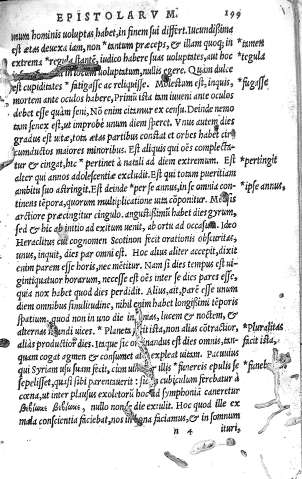 EPISTOLARVM. 199
mum hominis voluptas habet, in finem sui differt. Iucundissima
est ætas deuexa iam, non *tantum præceps, & illam quoq; in *tamen
extrema *regula stantē, iudico habere suas voluptates, aut hoc *tegula
in locum voluptatum, nullis egere. Quàm dulce
est cupiditates *fatigasse ac reliquisse. Molestum est, inquis, *fugasse
mortem ante oculos habere, Primū ista tam iuueni ante oculos
debet esse quàm seni. Nō enim citamur ex censu. Deinde nemo
tam senex est, ut improbè unum diem speret. Vnus autem dies
gradus est uitæ, tota ætas partibus constat et orbes habet cir
cumductos maiores minoribus. Est aliquis qui oēs complecta-
tur & cingat, hic *pertinet à natali ad diem extremum. Est *pertingit
alter qui annos adolescentiæ excludit. Est qui totam pueritiam
ambitu suo astringit. Est deinde *per se annus, in se omnia con- *ipse annus,
tinens tēpora, quorum multiplicatione uita cōponitur. Mēsis
arctiore præcingitur cingulo. angustissimū habet dies gyrum,
sed & hic ab initio ad exitum uenit, ab ortu ad occasum. Ideo
Heraclitus cui cognomen Scotinon fecit orationis obscuritas,
unus, inquit, dies par omni est. Hoc alius aliter accepit, dixit
enim parem esse horis, nec mētitur. Nam si dies tempus est ui-
gintiquatuor horarum, necesse est oēs inter se dies pares esse,
quia nox habet quod dies perdidit. Alius, ait, parē esse unum
diem omnibus similitudine, nihil enim habet longissimi tēporis
spatium, quod non in uno die inuenias, lucem & noctem, &
alternas mundi uices. *Planeta facit ista, non alias cōtractior, *Pluralitas
alias productior dies. Itaque sic ordinandus est dies omnis, tan- facit ista,
quam cogat agmen & consumet atq; expleat uitam. Pacuuius
qui Syriam usu suam fecit, cùm uino & illis *funereis epulis se *funeb
sepelisset, quasi sibi parentauerit: sic in cubiculum ferebatur à
cœna, ut inter plausus exoletorū hoc ad symphoniā caneretur
βεβίωται βεβίωται, nullo non se die extulit. Hoc quod ille ex
mala conscientia faciebat, nos in bona faciamus, & in somnum
n 4 ituri,